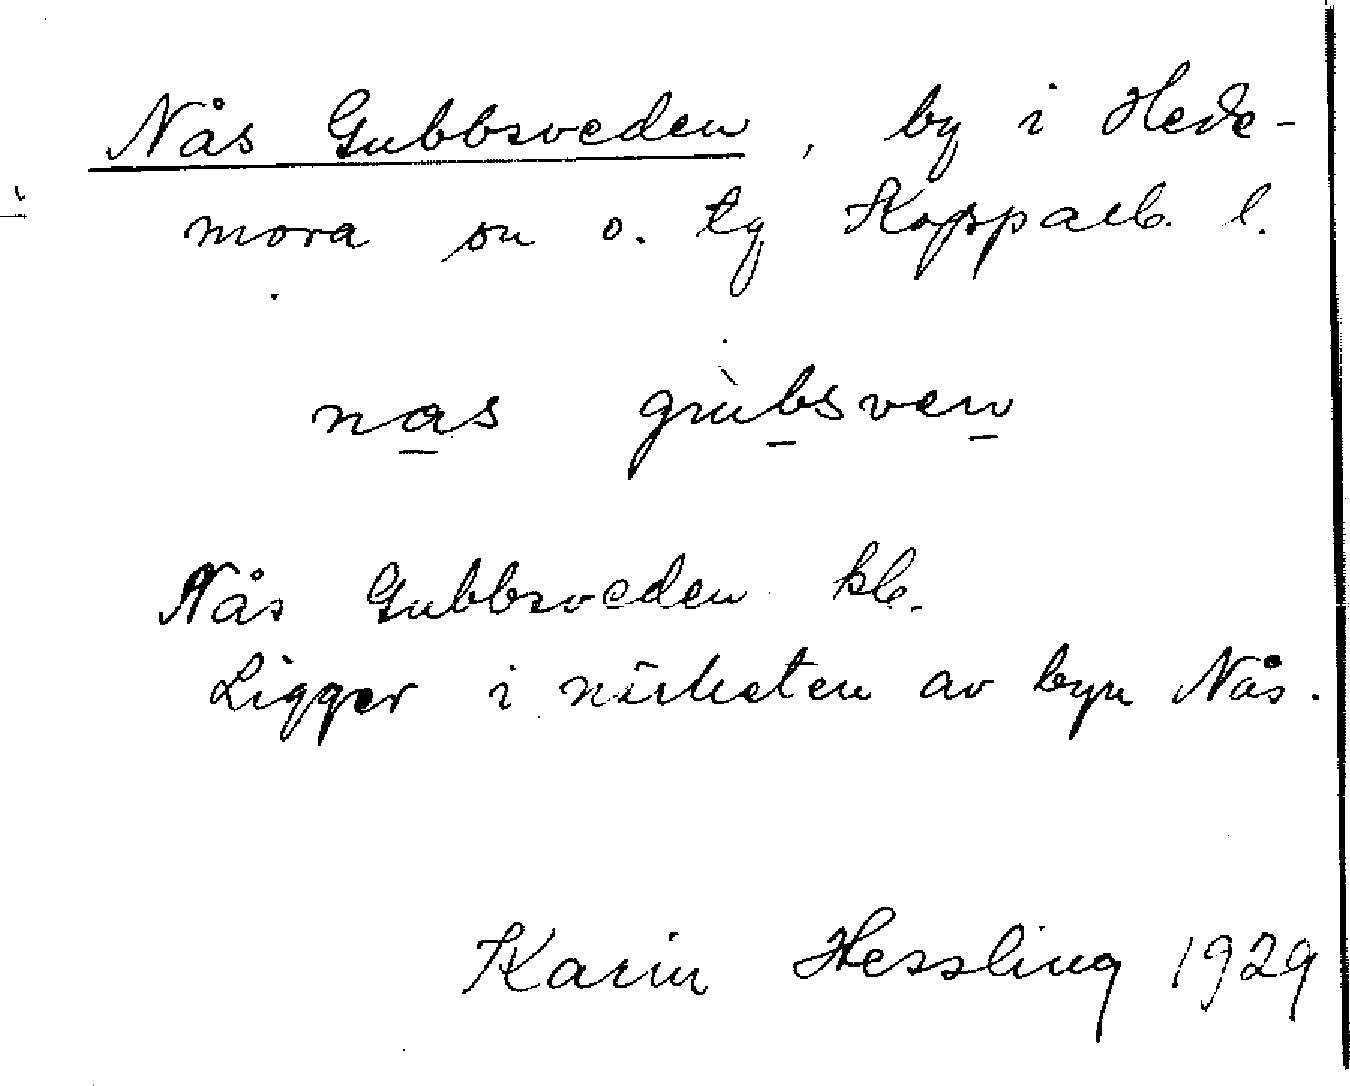 Nås Gubbsveden, by i Hede-
mora sn o. tg Kopparb. l.
nas gùbsven
Nås Gubbsveden kb.
Ligger i närheten av byn Nås.
Karin Hessling 1929